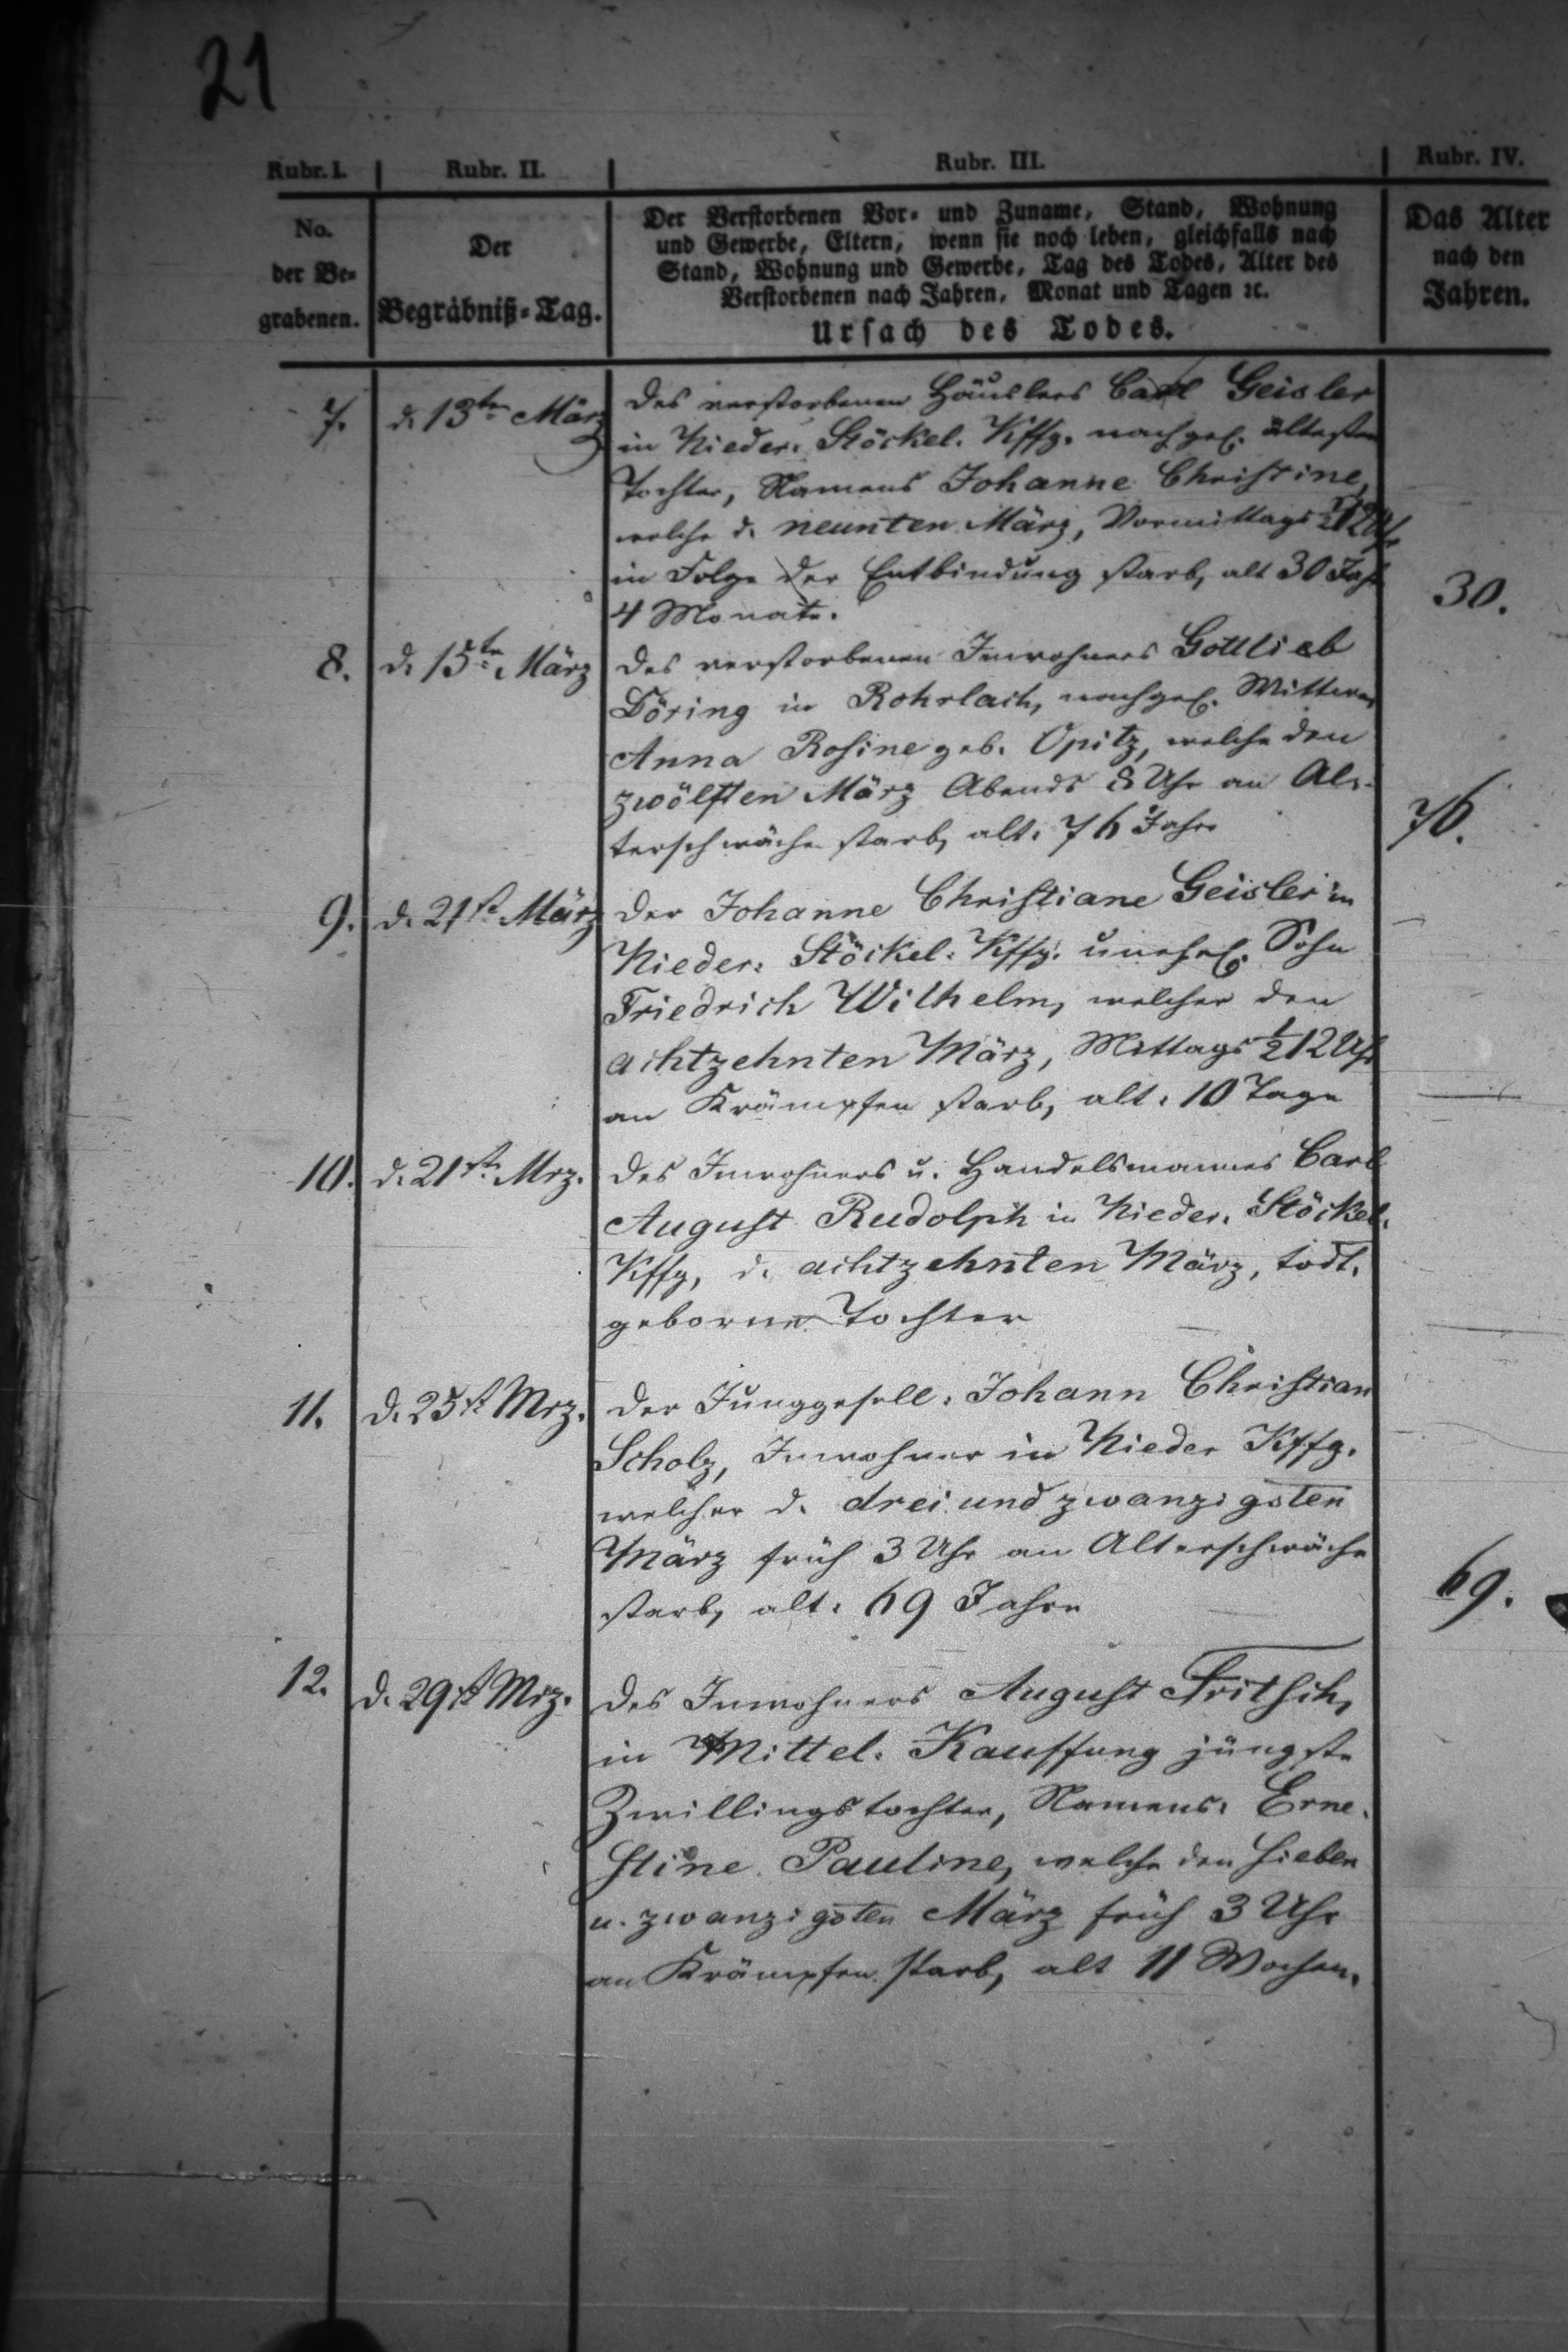 21
Rubr. I. Rubr. II. Rubr. III. Rubr. IV.
No.
der Be-
grabenen.
Der
Begräbniß-Tag.
Der Verstorbenen Vor- und Zuname, Stand, Wohnung
und Gewerbe, Eltern, wenn sie noch leben, gleichfalls nach
Stand, Wohnung und Gewerbe, Tag des Todes, Alter des
Verstorbenen nach Jahren, Monat und Tagen ꝛc.
Ursach des Todes.
Das Alter
nach den
Jahren.
7. d. 13te März
des verstorbenen Häuslers Carl Geisler
in Nieder. Stöckel. Kffg. nachgel. älteste
Tochter, Namens Johanne Christine,
welche d. neunten März, Vormittags ½12 Uhr
in Folge der Entbindung starb, alt 30 Jahr
4 Monate.
30.
8. d. 15te März
des verstorbenen Inwohners Gottlieb
Döring in Rohrlach, nachgel. Wittwe
Anna Rosine geb. Opitz, welche den
zwölften März Abends 8 Uhr an Al-
terschwäche starb, alt. 76 Jahr
76.
9. d. 21st März
der Johanne Christiane Geisler in
Nieder. Stöckel. Kffg. unehel. Sohn
Friedrich Wilhelm, welcher den
achtzehnten März, Mittags ½12 Uhr
an Krämpfen starb, alt. 10 Tage
10. d. 21st. Mrz.
des Inwohners u. Handelsmannes Carl
August Rudolph in Nieder. Stöckel.
Kffg, d. achtzehnten März, todt.
geborne Tochter
11. d. 25st Mrz.
der Junggesell. Johann Christian
Scholz, Inwohner in Nieder Kffg.
welcher d. drei und zwanzigsten
März früh 3 Uhr an Alterschwäche
starb, alt. 69 Jahre
69.
12. d. 29st Mrz.
des Inwohners August Fritsch,
in Mittel. Kauffung jüngste
Zwillingstochter, Namens. Erne-
stine Pauline, welche den sieben
u. zwanzigsten März früh 3 Uhr
an Krämpfen starb, alt 11 Wochen.